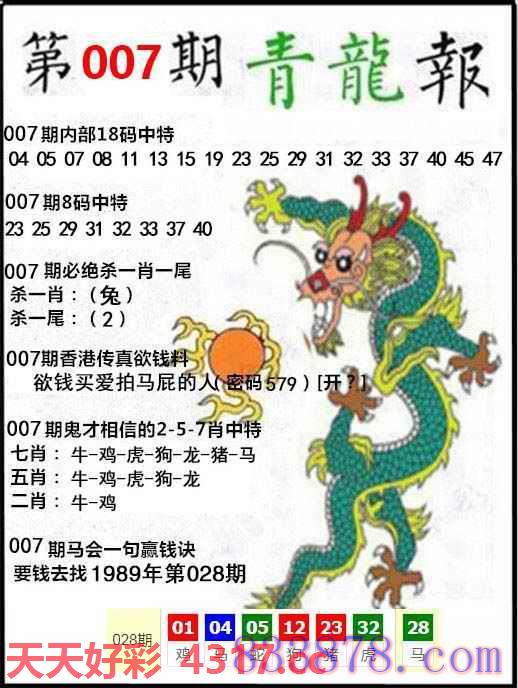 第007期青龍報
007期内部18码中特
04 05 07 08 11 13 15 19 23 25 29 31 32 33 37 40 45 47
007期8码中特
23 25 29 31 32 33 37 40
007 期必绝杀一肖一尾
杀一肖：（兔）
杀一尾：（2）
007期香港传真欲钱料
欲钱买爱拍马屁的人(密码579)[开?]
007期鬼才相信的2-5-7肖中特
七肖：牛-鸡-虎-狗-龙-猪-马
五肖：牛-鸡-虎-狗-龙
二肖：牛-鸡
007期马会一句赢钱诀
要钱去找1989年第028期
028期 01 04 05 12 23 32 28
鸡 马 蛇 狗 猪 虎 马
天天好彩 4317.cc